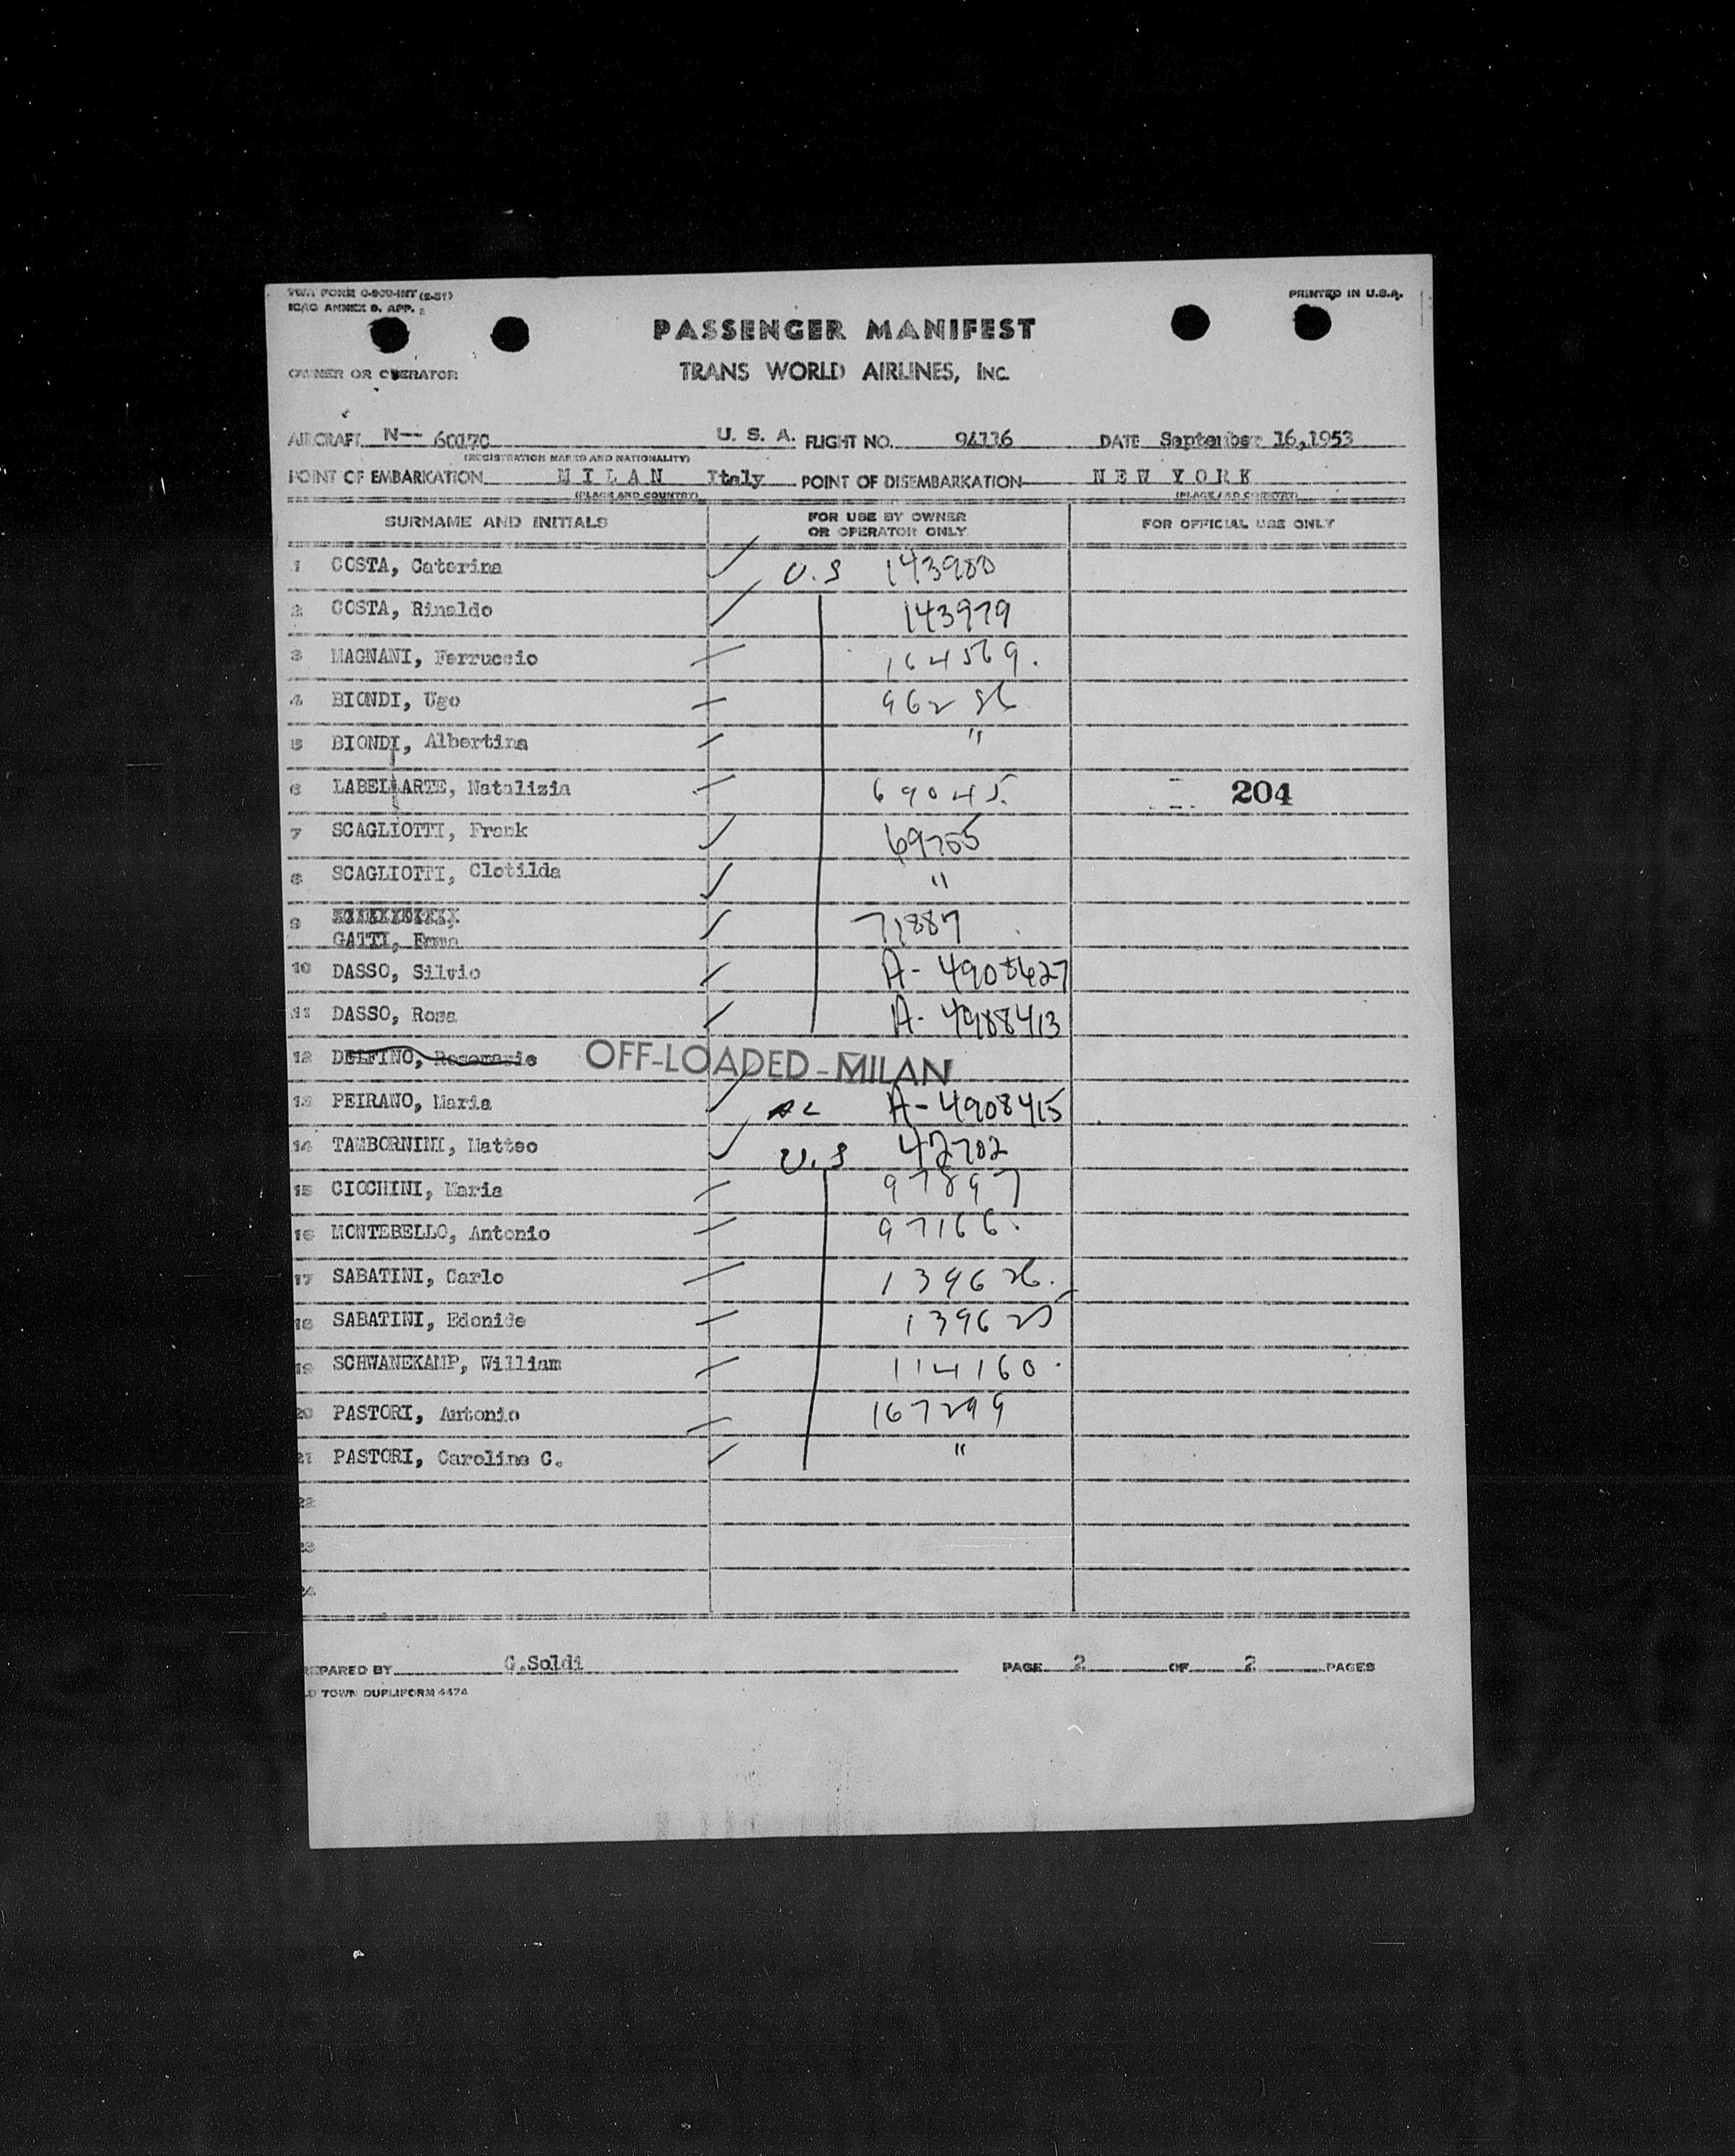 TWA FORM O-900-INT (2-51)
PRINTED IN U.S.A.
ICAO ANNEX 9. APP. 2
PASSENGER MANIFEST
OWNER OR OPERATOR
TRANS WORLD AIRLINES, INC.
AIRCRAFT N-- 6017C U. S. A. FLIGHT NO. 94116 DATE September 16,1953
(REGISTRATION MARKS AND NATIONALITY)
POINT OF EMBARKATION M I L A N Italy POINT OF DISEMBARKATION N E W Y O R K
(PLACE AND COUNTRY) (PLACE AND COUNTRY)
SURNAME AND INITIALS FOR USE BY OWNER OR OPERATOR ONLY FOR OFFICIAL USE ONLY
1 COSTA, Caterina U.S 143980
2 COSTA, Rinaldo 143979
3 MAGNANI, Ferruccio 164569.
4 BIONDI, Ugo 96286
5 BIONDI, Albertina "
6 LABELLARTE, Natalizia 69045. 204
7 SCAGLIOTTI, Frank 69755
8 SCAGLIOTTI, Clotilda "
9 GATTI, Emma 71887
10 DASSO, Silvio A- 4908627
11 DASSO, Rosa A- 4988413
12 DELFINO, Rosemarie OFF-LOADED-MILAN
13 PEIRANO, Maria A- 4908415
14 TAMBORNINI, Matteo U.S 42702
15 CIOCHINI, Maria 97897
16 MONTEBELLO, Antonio 97166.
17 SABATINI, Carlo 139626.
18 SABATINI, Edonide 139625
19 SCHWANEKAMP, William 114160.
20 PASTORI, Antonio 167299
21 PASTORI, Carolina C. "
22
23
24
REPARED BY G.Soldi PAGE 2 OF 2 PAGES
LD TOWN DUPLIFORM 4474